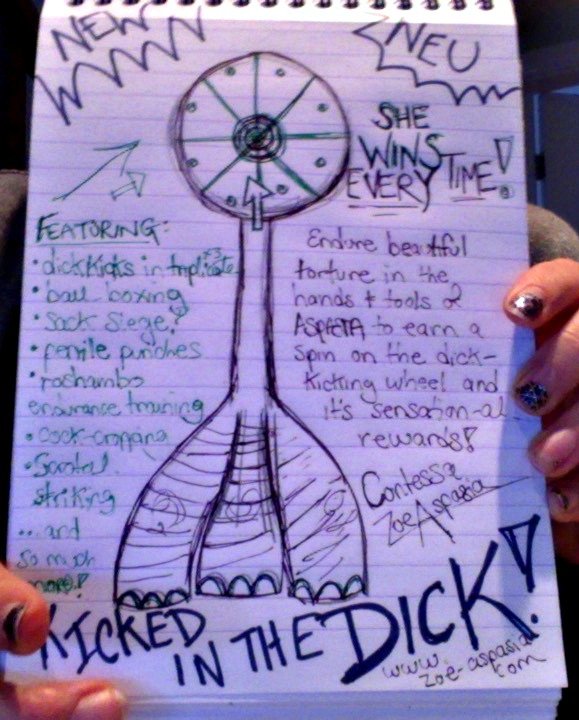 NEW
NEU
SHE
WINS
EVERY TIME!
FEATURING:
• dick kicks in triplicate
• ball boxing
• sack siege!
• penile punches
• roshambo
endurance training
• Cock-cropping
• Scrotal
striking
...and
so much
more!
Endure beautiful
torture in the
hands + tools of
ASPASIA to earn a
spin on the dick-
kicking wheel and
it's sensation-al
rewards!
Contessa
Zoe Aspasia
KICKED
IN THE DICK!
www.
zoe-aspasia.
com